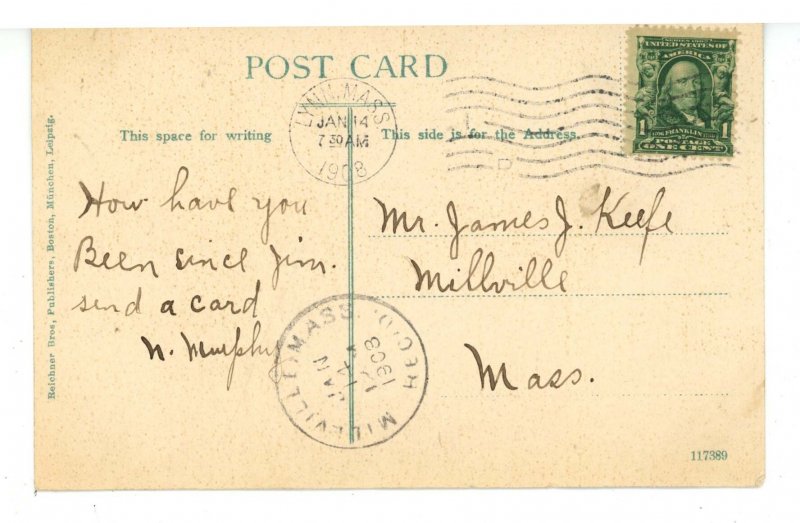 POST CARD
SERIES 1902
UNITED STATES OF
AMERICA
1 FRANKLIN 1
POSTAGE
ONE CENT
LYNN, MASS
JAN 14
7 30 AM
1908
D
This space for writing
This side is for the Address.
How have you
Been since Jim.
send a card
N. Murphy
Mr. James J. Keefe
Millville
Mass.
MILLVILLE, MASS. REC'D.
JAN
14
1908
Reichner Bros, Publishers, Boston, München, Leipzig.
117389